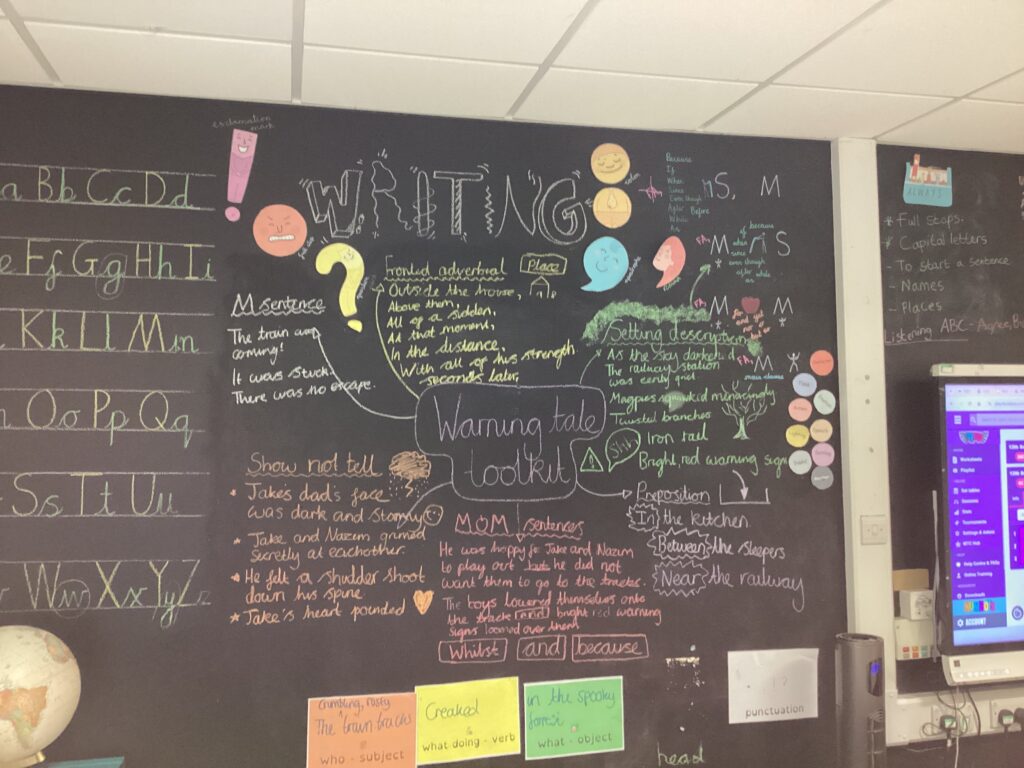 exclamation mark
a Bb Cc Dd
e Ff Gg Hh Ii
Kk Ll Mm
Oo Pp Qq
Ss Tt Uu
Ww Xx Yy Z
WRITING
M sentence
The train was
coming!
It was stuck.
There was no escape.
Fronted adverbial
Place
Outside the house,
Above them,
All of a sudden,
At that moment,
In the distance,
With all of his strength
seconds later,
Because
If
When
Since
Even though
After Before
While
As
S, M
M S
M M
M
Setting description
As the sky darkened
The railway station
was eerily quiet
Magpies squawked menacingly
Twisted branches
Iron rail
Bright red warning signs
Warning tale
toolkit
Show not tell
* Jake's dad's face
was dark and stormy
* Jake and Nazim grinned
secretly at eachother.
* He felt a shudder shoot
down his spine
* Jake's heart pounded
MOM sentences
He was happy for Jake and Nazim
to play out but he did not
want them to go to the tracks.
The boys lowered themselves onto
the track and bright red warning
signs loomed over them
Whilst and because
Preposition
In the kitchen
Between the sleepers
Near the railway
crumbling, rusty
The train tracks
who - subject
Creaked
what doing - verb
in the spooky
forest
what - object
punctuation
head
ALWAYS
* Full stops.
* Capital letters
- To start a sentence
- Names
- Places
Listening ABC - Agree, Bu
Worksheets
Playlist
Set tables
Sessions
Stats
Tournaments
Settings & Admin
Help Centre & FAQs
Online Training
Downloads
ACCOUNT